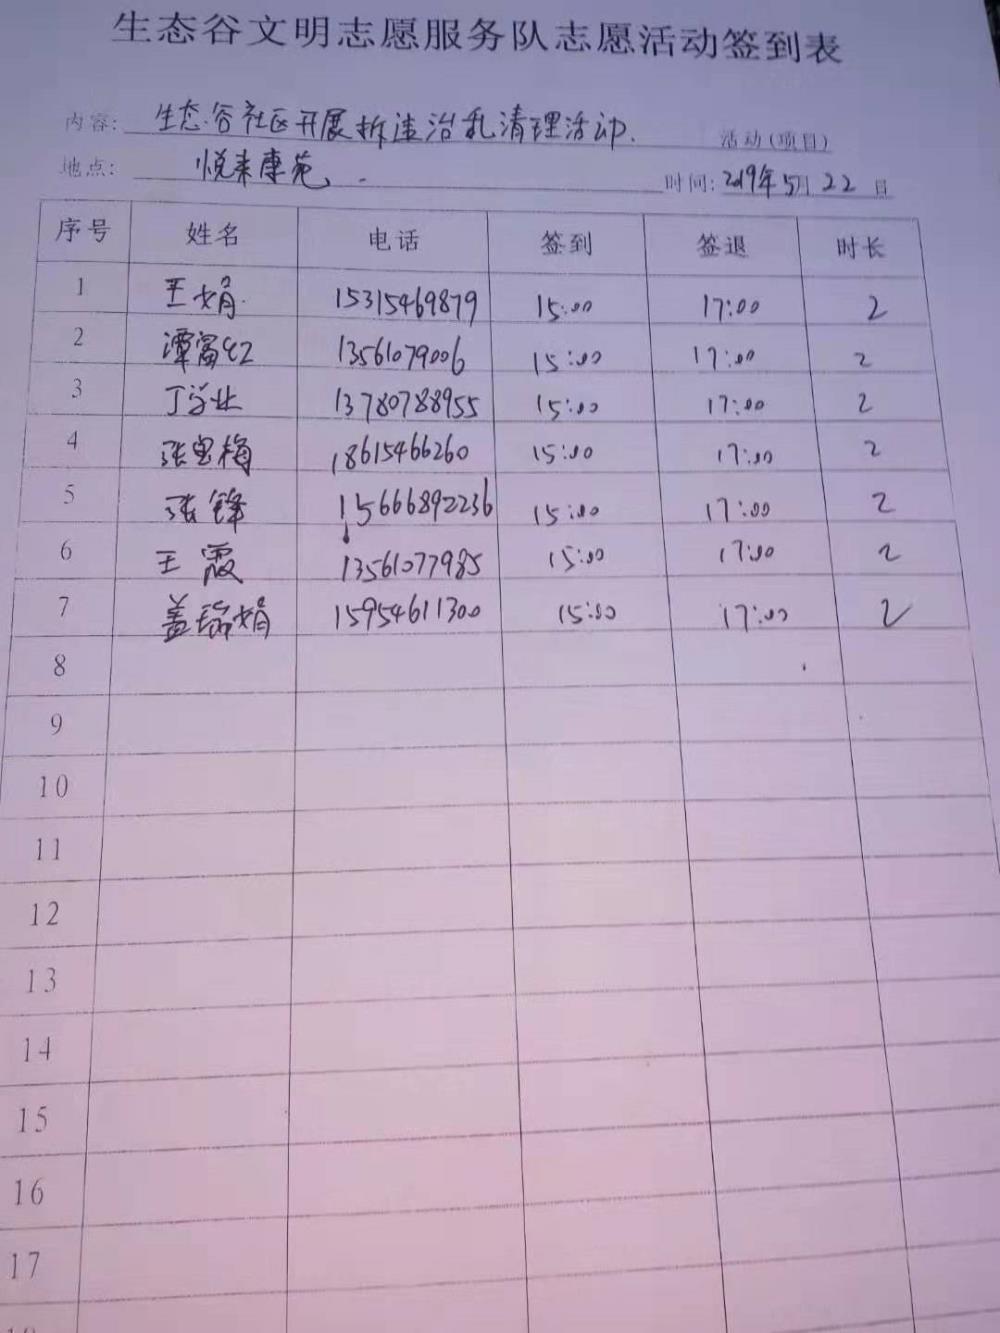 生态谷文明志愿服务队志愿活动签到表
内容: 生态谷社区开展拆违治乱清理活动. 活动(项目)
地点: 悦来康苑. 时间: 2019年5月22日
序号 姓名 电话 签到 签退 时长
1 王娟 15315469879 15:00 17:00 2
2 谭富红 13561079006 15:00 17:00 2
3 丁学业 13780788955 15:00 17:00 2
4 张宝梅 18615466260 15:00 17:00 2
5 张锋 15666892236 15:00 17:00 2
6 王霞 13561077985 15:00 17:00 2
7 盖瑞娟 15954611300 15:00 17:00 2
8
9
10
11
12
13
14
15
16
17